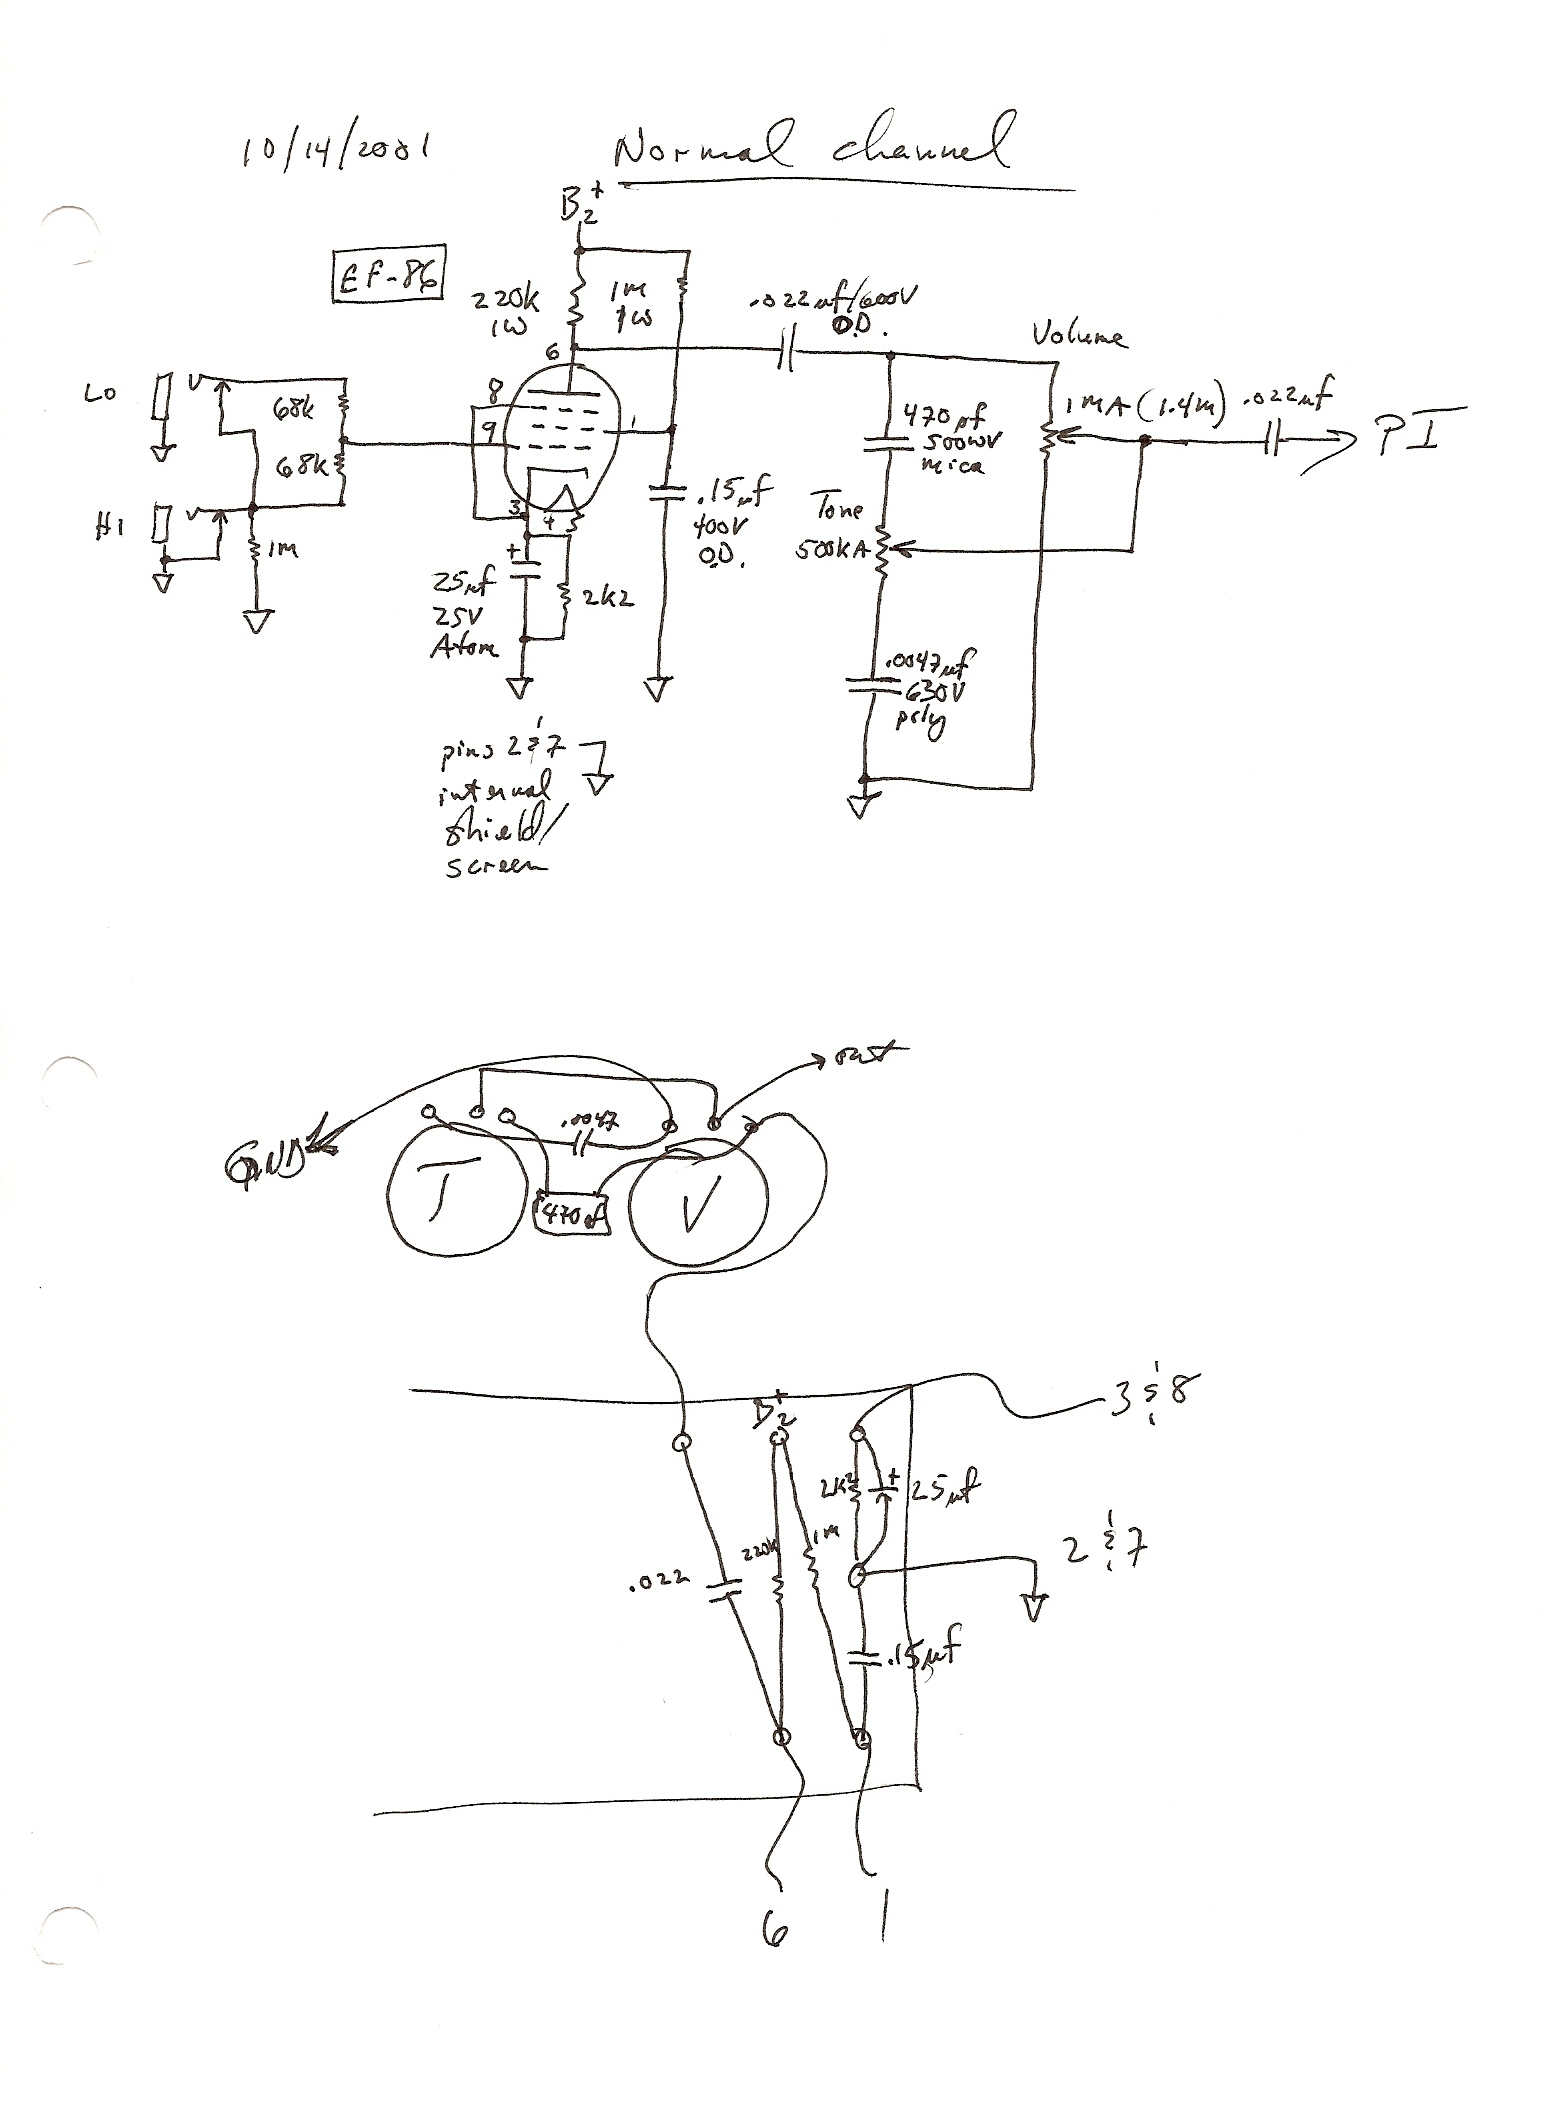 10/14/2001
Normal channel
B2+
EF-86
220k
1W
1M
1W
.022µf/600V
O.D.
Volume
6
8
9
1
3
4
LO
68k
68k
HI
1M
+
25µf
25V
Atom
2k2
.15µf
400V
O.D.
470pf
500WV
mica
1MA (1.4M)
.022µf
PI
Tone
500kA
.0047µf
630V
poly
pins 2 & 7
internal
shield/
screen
out
.0047
GND
T
470pf
V
B2+
3 & 8
2k2
+
25µf
220k
1M
2 & 7
.022
.15µf
6
1